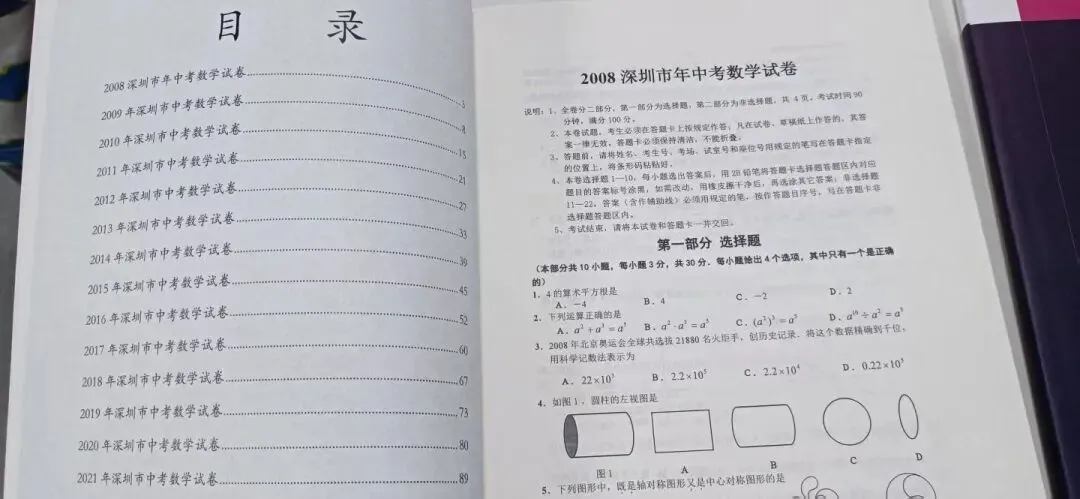 目 录
2008 深圳市年中考数学试卷
2009 年深圳市中考数学试卷
2010 年深圳市中考数学试卷 15
2011 年深圳市中考数学试卷 21
2012 年深圳市中考数学试卷 27
2013 年深圳市中考数学试卷 33
2014 年深圳市中考数学试卷 39
2015 年深圳市中考数学试卷 45
2016 年深圳市中考数学试卷 52
2017 年深圳市中考数学试卷 60
2018 年深圳市中考数学试卷 67
2019 年深圳市中考数学试卷 73
2020 年深圳市中考数学试卷 80
2021 年深圳市中考数学试卷 89
2008 深圳市年中考数学试卷
说明:1、全卷分二部分,第一部分为选择题,第二部分为非选择题,共 4 页,考试时间 90
分钟,满分 100 分。
2、本卷试题,考生必须在答题卡上按规定作答;凡在试卷、草稿纸上作答的,其答
案一律无效,答题卡必须保持清洁,不能折叠。
3、答题前,请将姓名、考生号、考场、试室号和座位号用规定的笔写在答题卡指定
的位置上,将条形码粘贴好。
4、本卷选择题 1—10,每小题选出答案后,用 2B 铅笔将答题卡选择题答题区内对应
题目的答案标号涂黑,如需改动,用橡皮擦干净后,再选涂其它答案;非选择题
11—22,答案(含作辅助线)必须用规定的笔,按作答题目序号,写在答题卡非
选择题答题区内。
5、考试结束,请将本试卷和答题卡一并交回。
第一部分 选择题
(本部分共 10 小题,每小题 3 分,共 30 分.每小题给出 4 个选项,其中只有一个是正确
的)
1.4 的算术平方根是
A.-4 B.4 C.-2 D.2
2.下列运算正确的是
A.a² + a³ = a⁵ B.a² · a³ = a⁵ C.(a²)³ = a⁵ D.a¹⁰ ÷ a² = a⁵
3.2008 年北京奥运会全球共选拔 21880 名火炬手,创历史记录.将这个数据精确到千位,
用科学记数法表示为
A.22×10³ B.2.2×10⁵ C.2.2×10⁴ D.0.22×10⁵
4.如图 1,圆柱的左视图是
图1 A B C D
5.下列图形中,既是轴对称图形又是中心对称图形的是